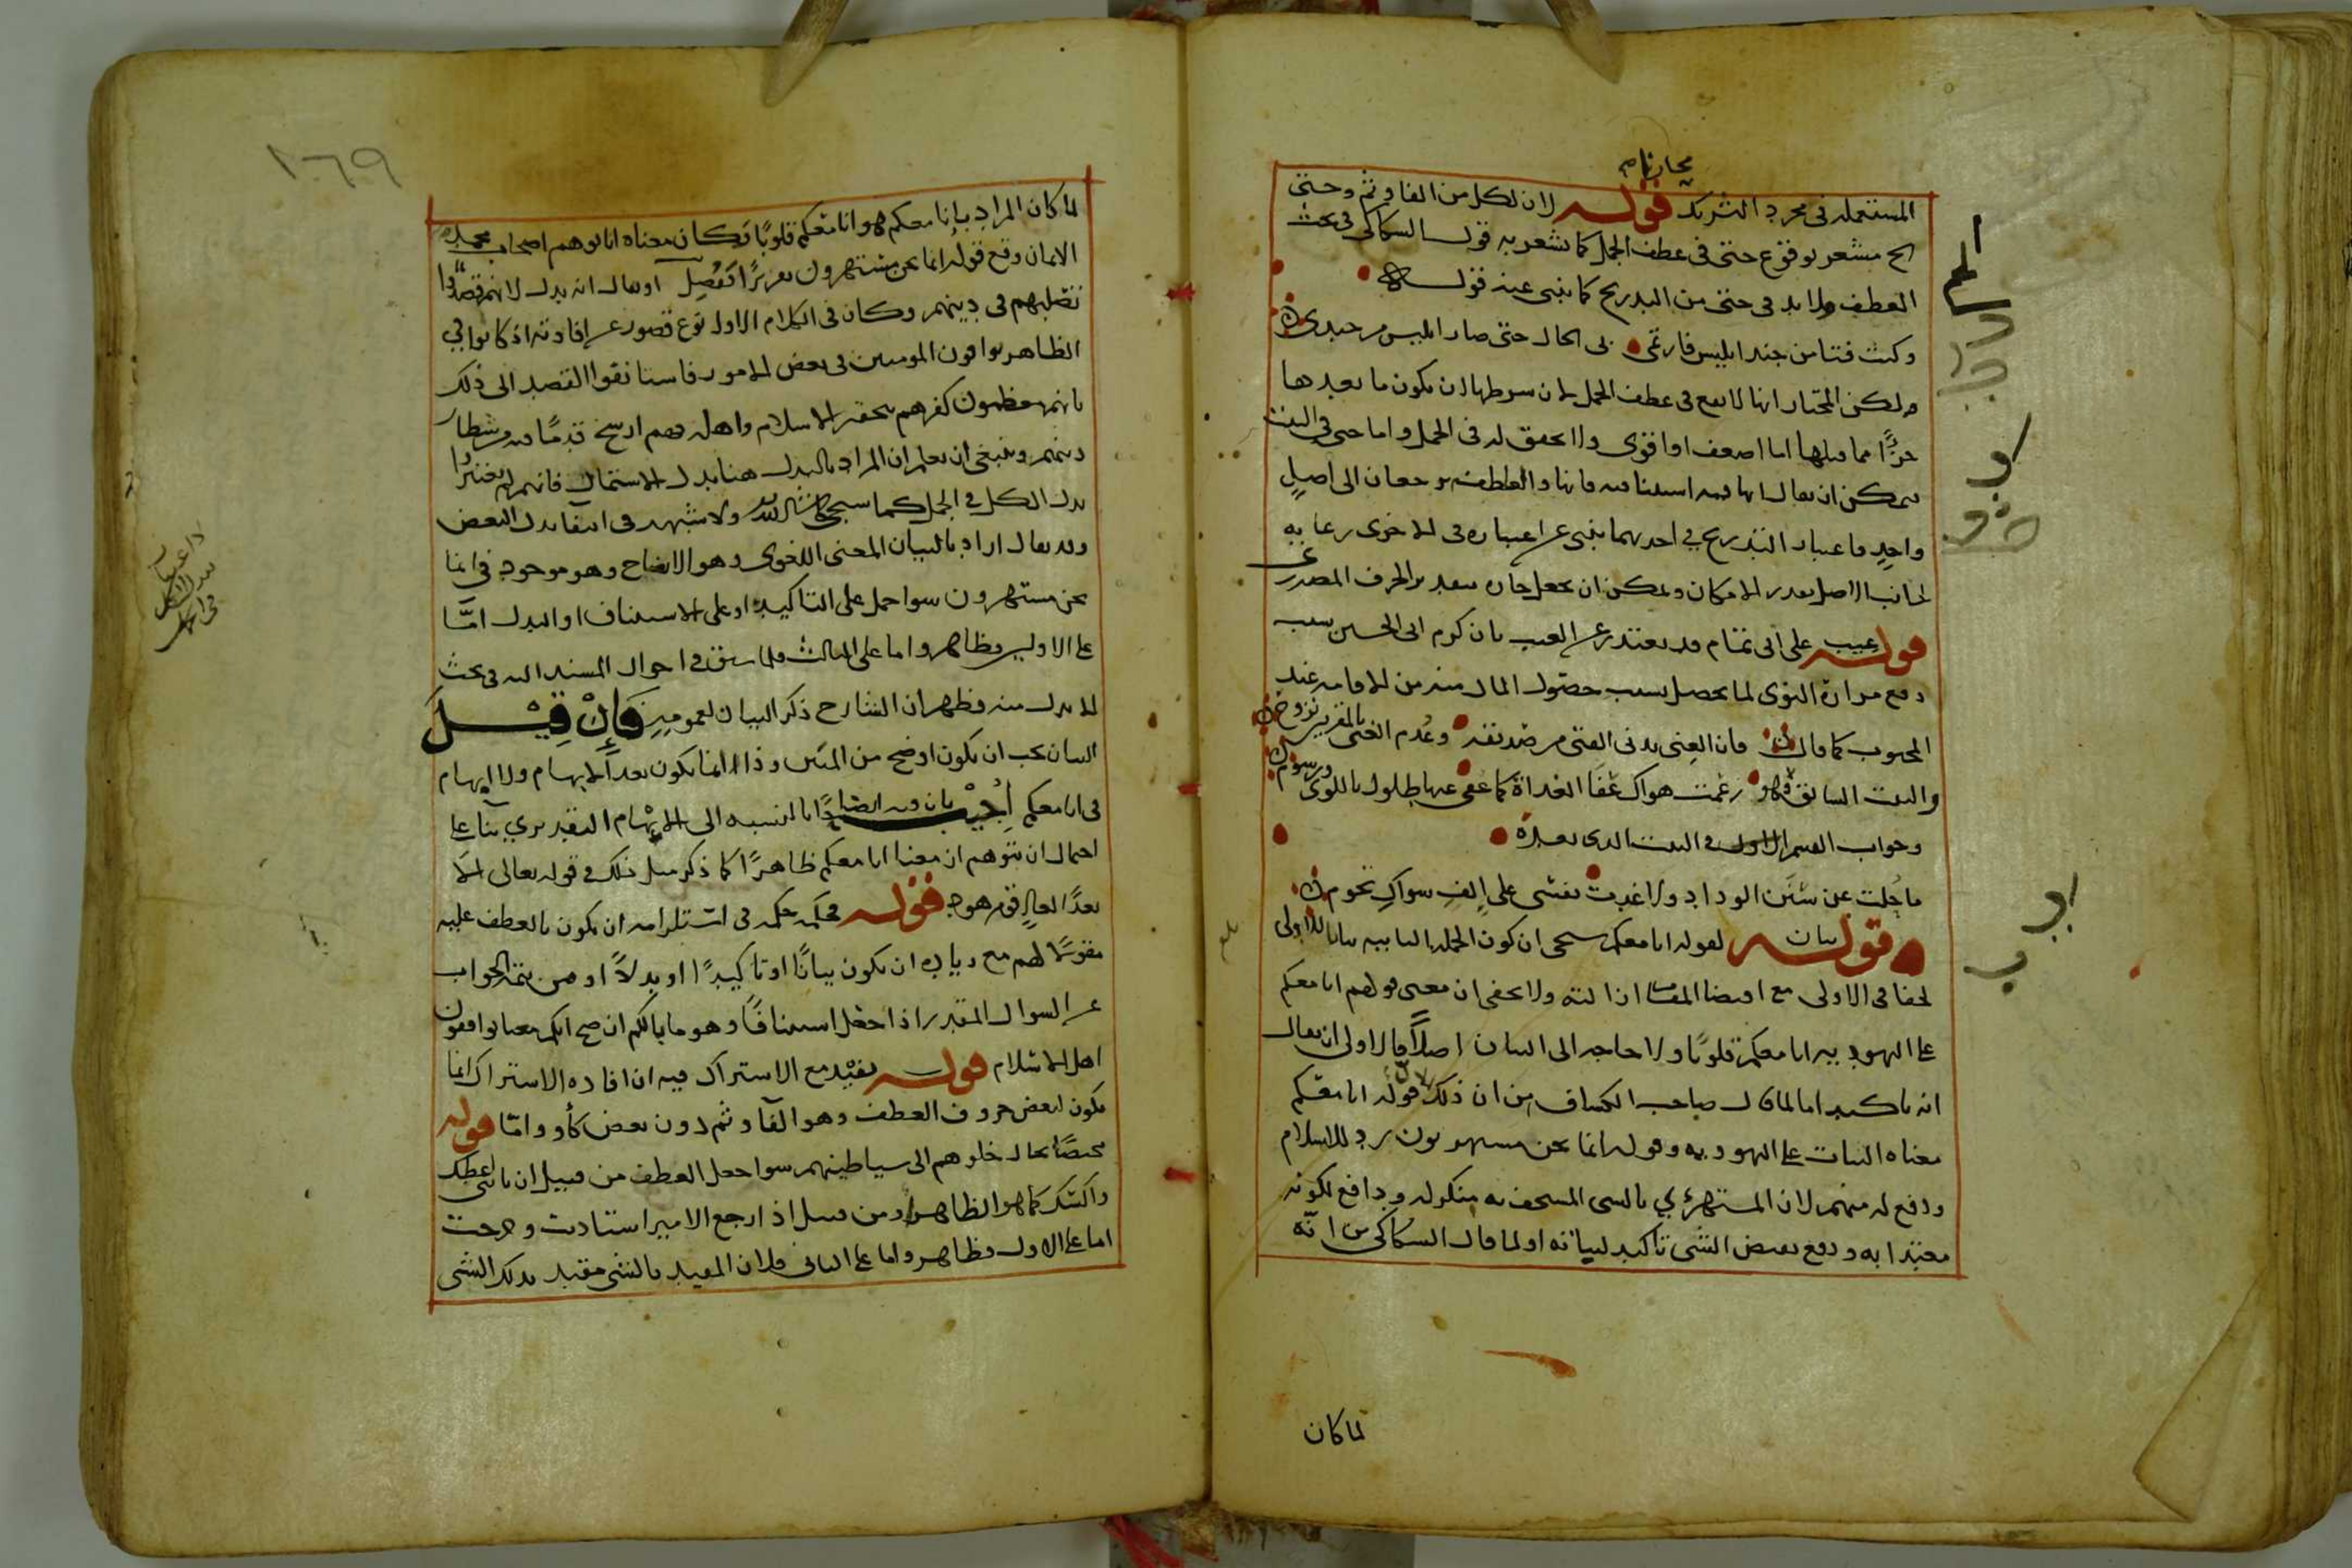 مجازا تم
المستعملة فى مجرد التشريك قوله لان لكل من الفا وثم وحتى
الخ مشعر بوقوع حتى فى عطف الجمل كما يشعر به قول السكاكى فى بحث
العطف ولا بد فى حتى من التدريج كما ينبى عنه قوله
وكنت فتا من جند ابليس فارتمى بى الحال حتى صار ابليس من جندى
ولكن المختار انها لا تقع فى عطف الجمل لان شرطها ان يكون ما بعدها
جزًا مما قبلها اما اضعف او اقوى ولا يتحقق له فى الجمل واما حتى فى البيت
فيمكن ان يقال انها فيه استينافيه فانها والعاطفه ترجعان الى اصل
واحد فاعتبار التدريج فى احديهما ينبى عن اعتباره فى الاخرى رعاية
لجانب الاصل بقدر الامكان ويمكن ان يجعل جاره بتقدير الحرف المصدرى
قوله عيب على ابى تمام قد يعتذر عن العيب بان كرم ابى الحسين سبب
دفع مرارة النوى لما يحصل بسبب حصول المال منه من الاقامه عند
المحبوب كما قال فان الغنى يدنى الفتى من صديقه وعدم الغنى بالمقترين نزوح
والبيت السابق قوله زعمت هواك عفا الغداة كما عفى عنها طلول باللوى ورسوم
وجواب القسم الاول فى البيت الذى بعده
ما حلت عن سنن الوداد ولا غدت نفسى على الف سواك تحوم
قوله بيان لقوله انا معكم سيجى ان كون الجمله الثانيه بيانا للاولى
لخفا فى الاولى مع اقتضا المقام ازالته ولا يخفى ان معنى قولهم انا معكم
على اليهوديه انا معكم قلوبًا ولا حاجه الى البيان اصلًا فالاولى ان يقال
انه تاكيد اما لما قال صاحب الكشاف من ان ذلك قوله انا معكم
معناه الثبات على اليهوديه وقوله انما نحن مستهزون رد للاسلام
ودفع له منهم لان المستهزئ بالشى المستخف به منكر له ودافع لكونه
معتدا به ودفع نقيض الشى تاكيد لثباته او لما قال السكاكى من انه
لما كان
لما كان المراد بانا معكم هو انا معكم قلوبًا وكان معناه انا نوهم اصحاب محمد
الايمان وقع قوله انما نحن مستهزون مقررًا ففصل او يقال انه بدل لانهم قصدوا
تصلبهم فى دينهم وكان فى الكلام الاول نوع قصور عن افادته اذ كانوا فى
الظاهر يوافقون المومنين فى بعض الامور فاستانفوا القصد الى ذلك
بانهم يعظمون كفرهم بتحقير الاسلام واهله فهم ارسخ قدمًا فيه من شطار
دينهم وينبغى ان يعلم ان المراد بالبدل هنا بدل الاشتمال فانهم لم يعتبروا
بدل الكل فى الجمل كما سيجى ان شا الله ولا شبهه فى انتفا بدل البعض
وقد يقال اراد بالبيان المعنى اللغوى وهو الايضاح وهو موجود فى انما
نحن مستهزون سوا حمل على التاكيد او على الاستيناف او البدل اما
على الاولين فظاهر واما على الثالث فلما سبق فى احوال المسند اليه فى بحث
الابدال منه فظهر ان الشارح ذكر البيان لعمومه فَإِنْ قِيْلَ
البيان يجب ان يكون اوضح من المبين وذا انما يكون بعد الابهام ولا ابهام
فى انا معكم أُجِيْبَ بان فيه ايضاحًا بالنسبه الى الابهام التقديرى بنا على
احتمال ان يتوهم ان معنا انا معكم ظاهرًا كما ذكر مثل ذلك فى قوله تعالى الا
بعدًا لعاد قوم هود قوله فحكمه حكمه فى استلزامه ان يكون بالعطف عليه
مقولًا لهم مع زياده ان يكون بيانًا او تاكيدًا او بدلًا او من تتمة الجواب
عن السوال المقدر اذا جعل استينافًا وهو ما بالكم ان صح انكم معنا توافقون
اهل الاسلام قوله يفيد مع الاشتراك فيه ان افاده الاشتراك انما
يكون لبعض حروف العطف وهو الفا وثم دون بعض كأو واما قوله
مختصًا بحال خلوهم الى شياطينهم سوا جعل العطف من قبيل ان تاتنى اعطك
واكسك كما هو الظاهر او من قبيل اذا رجع الامير استاذنت وخرجت
اما على الاول فظاهر واما على الثانى فلان المقيد بالشى مقيد بذلك الشى